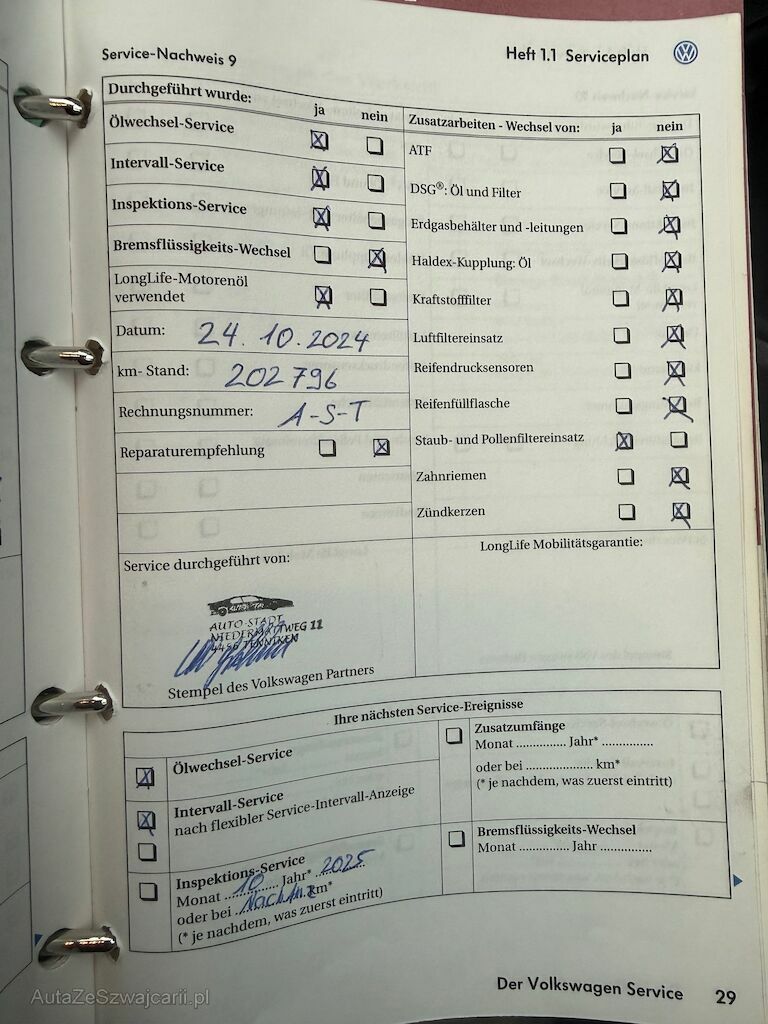 Service-Nachweis 9
Heft 1.1 Serviceplan
Durchgeführt wurde:
ja nein
Ölwechsel-Service
Intervall-Service
Inspektions-Service
Bremsflüssigkeits-Wechsel
LongLife-Motorenöl
verwendet
Datum: 24.10.2024
km- Stand: 202 796
Rechnungsnummer: A-S-T
Reparaturempfehlung
Zusatzarbeiten - Wechsel von: ja nein
ATF
DSG®: Öl und Filter
Erdgasbehälter und -leitungen
Haldex-Kupplung: Öl
Kraftstofffilter
Luftfiltereinsatz
Reifendrucksensoren
Reifenfüllflasche
Staub- und Pollenfiltereinsatz
Zahnriemen
Zündkerzen
Service durchgeführt von:
AUTO-STADT
NIEDERMATTWEG 11
4456 TENNIKEN
Stempel des Volkswagen Partners
LongLife Mobilitätsgarantie:
Ihre nächsten Service-Ereignisse
Ölwechsel-Service
Intervall-Service
nach flexibler Service-Intervall-Anzeige
Inspektions-Service
Monat 10 Jahr* 2025
oder bei km*
(* je nachdem, was zuerst eintritt)
Zusatzumfänge
Monat ............... Jahr* ...............
oder bei .................... km*
(* je nachdem, was zuerst eintritt)
Bremsflüssigkeits-Wechsel
Monat ............... Jahr ...............
Der Volkswagen Service 29
AutaZeSzwajcarii.pl